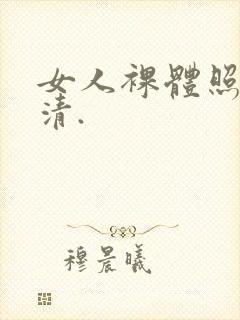 女人裸體照
清.
穆晨曦